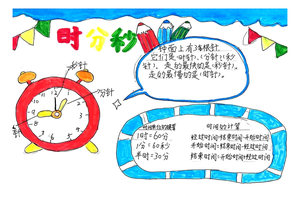 时分秒
钟面上有3根针
它们是(时针)、(分针)、(秒
针)。走的最快的是(秒针)。
走的最慢的是(时针)。
秒针
分针
时间单位的换算
1时=60分
1分=60秒
半时=30分
时间的计算
经过时间=结束时间-开始时间
开始时间=结束时间-经过时间
结束时间=开始时间+经过时间